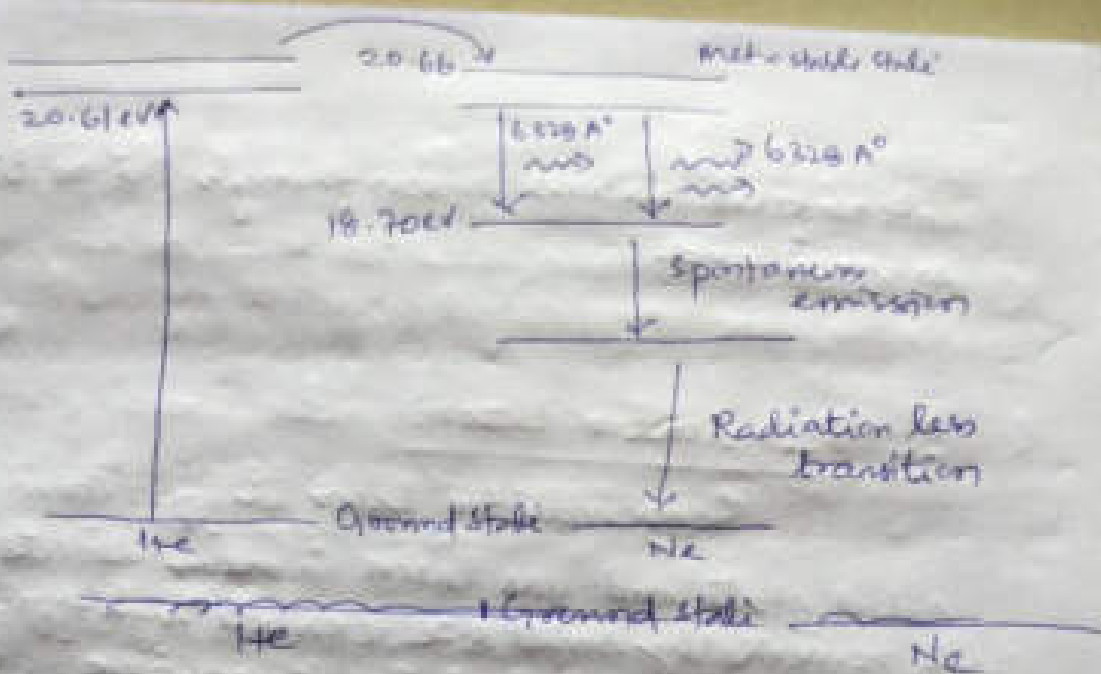 20.66
20.61eV
6328 A°
6328 A°
18.70eV
Spontaneous
emission
Radiation less
transition
Ground state
He
Ne
Ground state
He
Ne